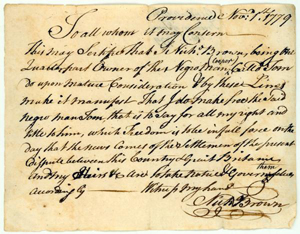 Providence Novr. 1st. 1779
To all whom it may Concern
This may Certifie that I Nichs. Brown, being one
Quarter part Owner of the Negro Man Called Tom
Do upon mature Consideration & by these Lines
make it manifest that I do make free the said
negro man Tom, that is to Say for all my right and
title to him, which Freedom is to be in full force on the
day that the news Comes of the Settlement of the present
Dispute between this Country & Great Britain
and my Heirs & are to take Notice & Govern them
According ly Witness my hand
Nichs. Brown